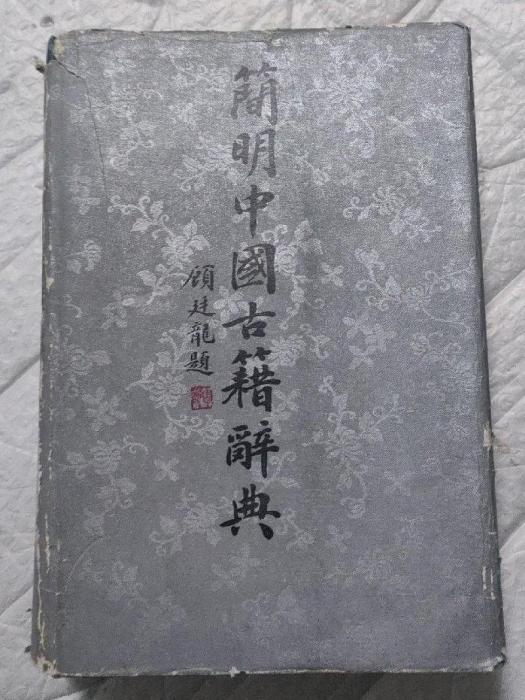 簡明中國古籍辭典
顧廷龍題